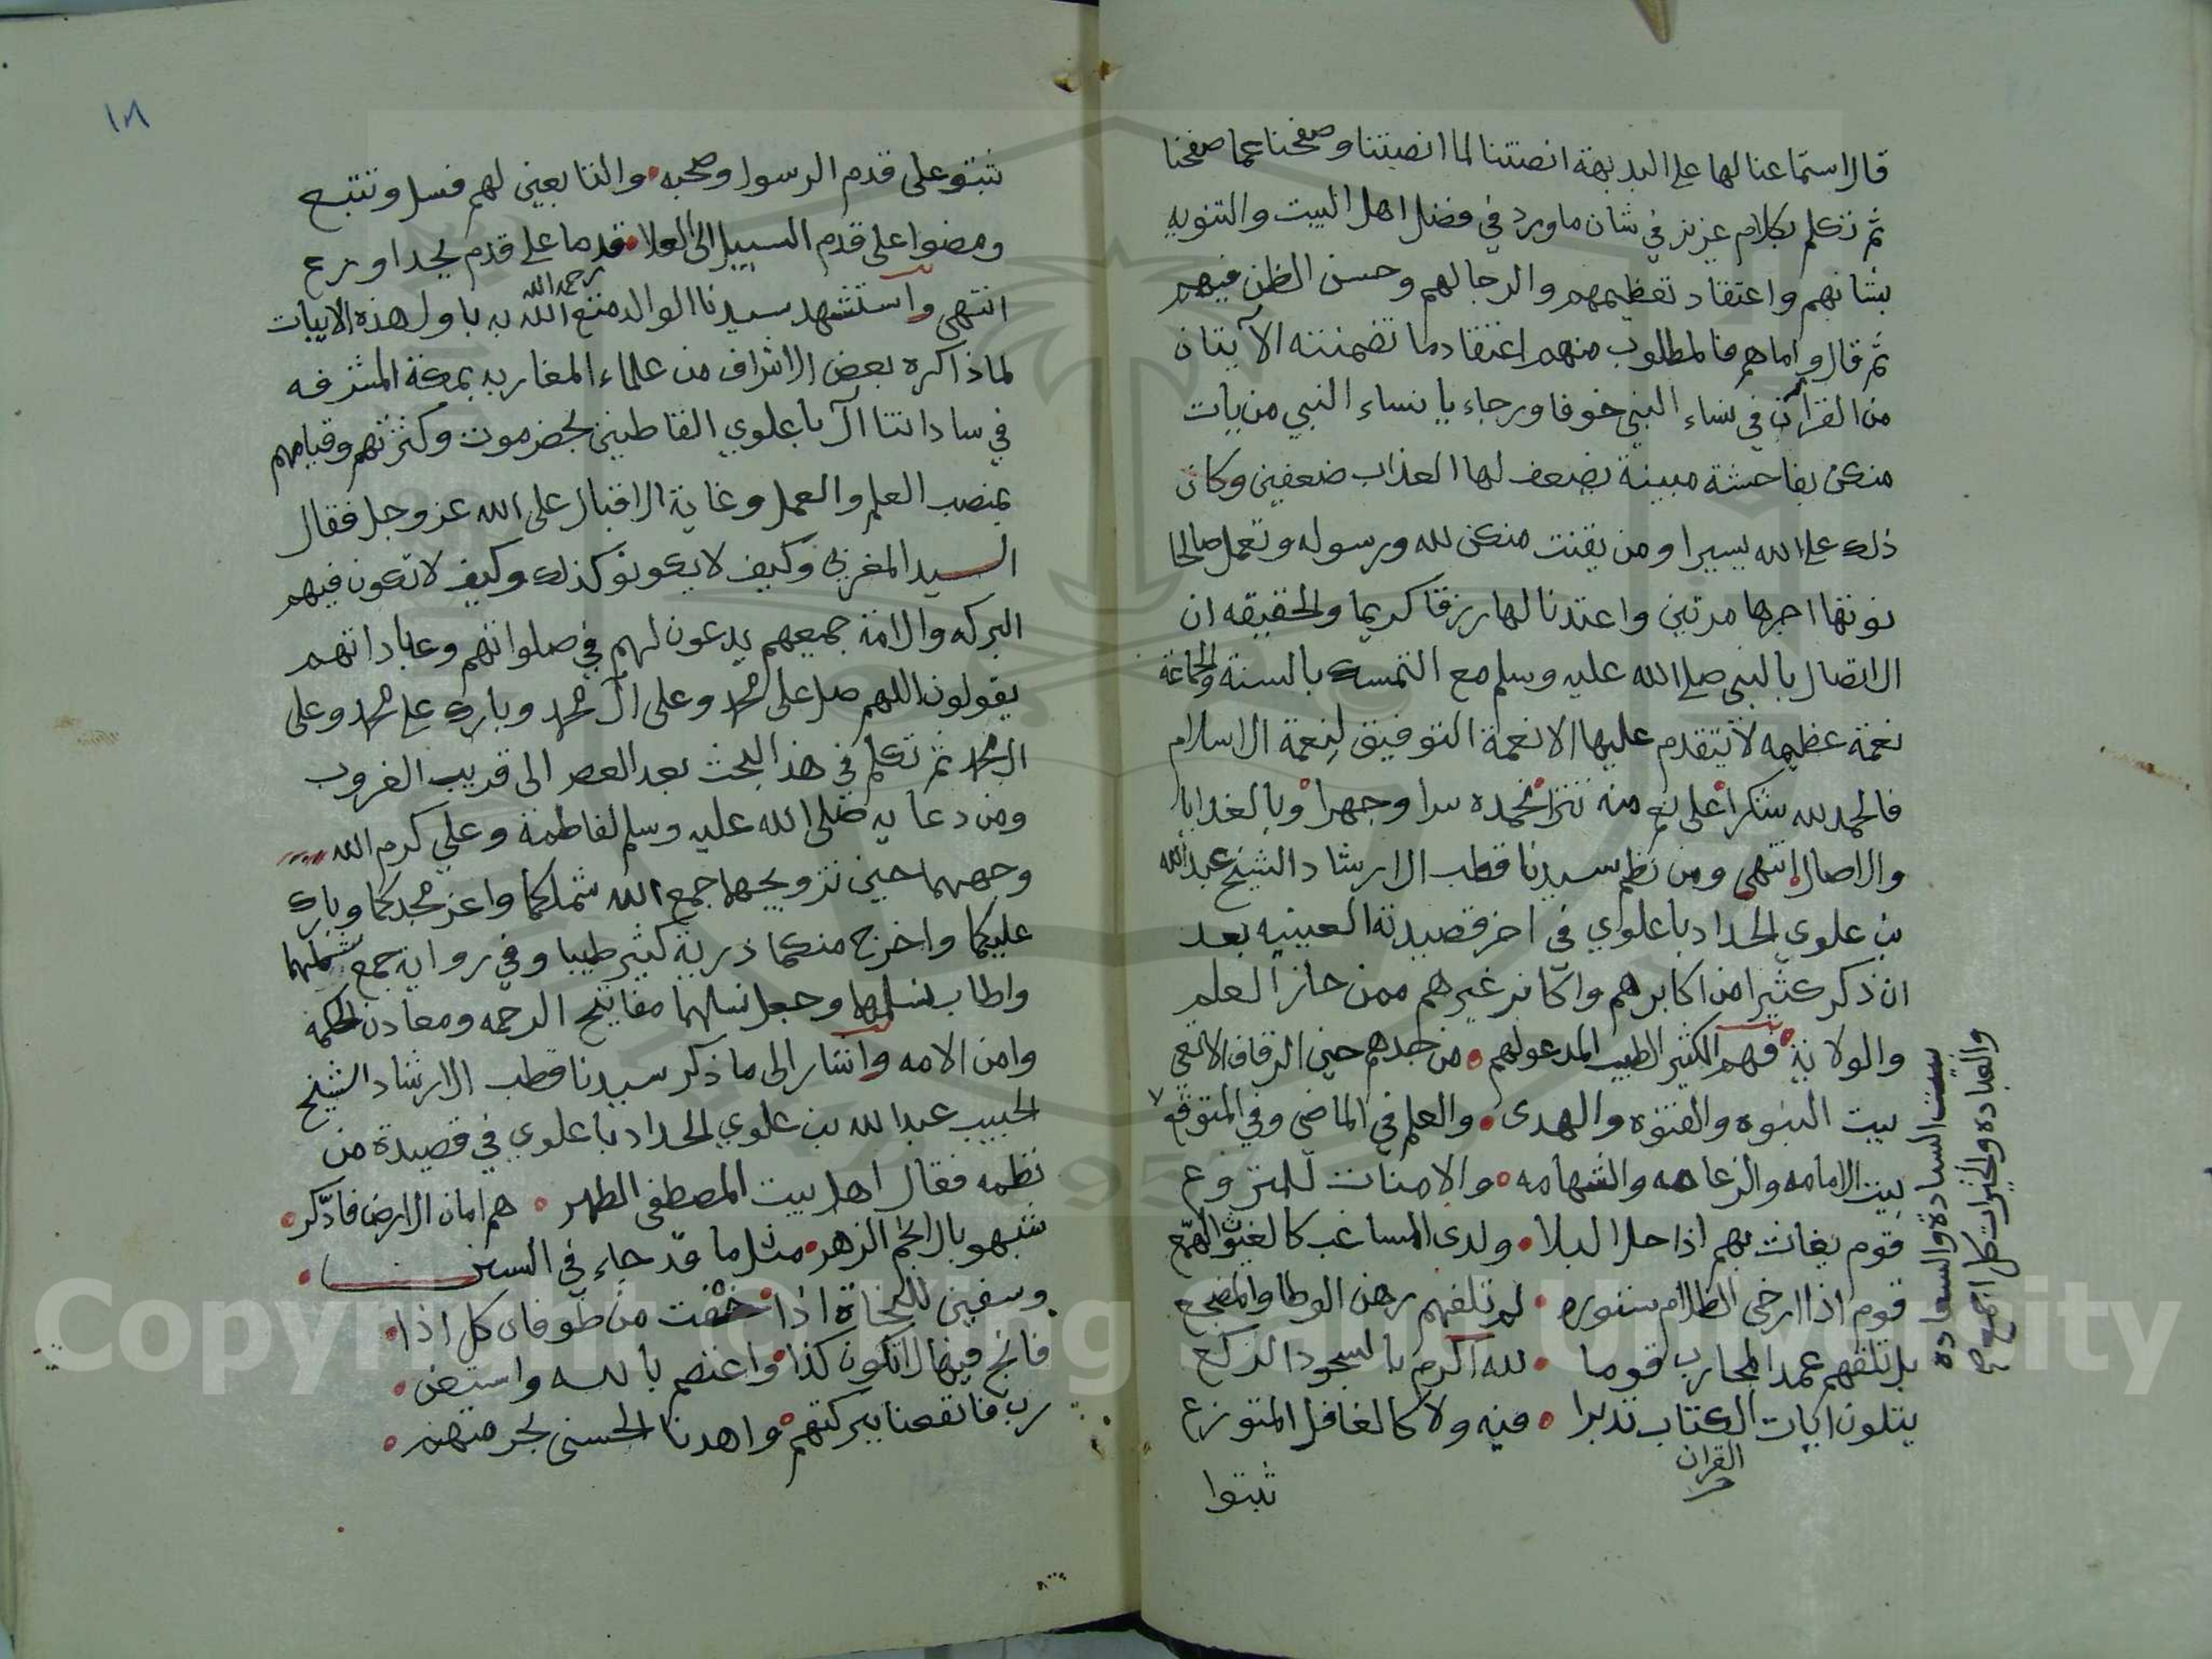 قال استماعنا لها على البديهة انصتنا لما انصتنا وصفحنا عما صفحنا
ثم تكلم بكلام عزيز في شان ما ورد في فضل اهل البيت والتنويه
بشانهم واعتقاد تعظيمهم والرجا لهم وحسن الظن فيهم
ثم قال واما هم فالمطلوب منهم اعتقاد ما تضمنته الآيتان
من القرآن في نساء النبي خوفا ورجاء يا نساء النبي من يات
منكن بفاحشة مبينة يضعف لها العذاب ضعفين وكان
ذلك على الله يسيرا ومن يقنت منكن لله ورسوله وتعمل صالحا
نوتها اجرها مرتين واعتدنا لها رزقا كريما والحقيقه ان
الاتصال بالنبي صلى الله عليه وسلم مع التمسك بالسنة والجماعة
نعمة عظيمه لا يتقدم عليها الا نعمة التوفيق لنعمة الاسلام
فالحمد لله شكرا على نعم منه تترا نحمده سرا وجهرا وبالغدايا
والاصال انتهى ومن نظم سيدنا قطب الارشاد الشيخ عبد الله
بن علوي الحداد باعلوي في اخر قصيدته العينيه بعد
ان ذكر كثيرا من اكابرهم واكابر غيرهم ممن حاز العلم
والولاية فهم الكثير الطيب المدعو لهم • من جدهم حين الزفاف الانفعي
بيت النبوه والفتوه والهدى • والعلم في الماضي وفي المتوقع
بيت الامامه والزعامه والشهامه • والامنات للمتروع
قوم يغاث بهم اذا حل البلا • ولدى المساغب كالغيوث الهمع
قوم اذا ارخى الظلام ستوره • لم تلفهم رهن الوطا والمضجع
بل تلقهم عمد المحارب قوما • لله اكرم بالسجود الركع
يتلون ايات الكتاب تدبرا • فيه ولا كالغافل المتوزع
القران
ثبتوا
بيت السيادة والسعاده
والعباده والخيرات كل اجمع صح
١٨
ثبتو على قدم الرسول وصحبه • والتابعين لهم فسل وتتبع
ومضوا على قدم السبيل الى العلا • قدما على قدم بجد اوزع
انتهى واستشهد سيدنا الوالد متع الله به باول هذه الابيات
رحمه الله
لما ذاكره بعض الاشراف من علماء المغاربه بمكة المشرفه
في ساداتنا آل باعلوي القاطنين بحضرموت وكثرتهم وقيامهم
بمنصب العلم والعمل وغاية الاقبال على الله عز وجل فقال
السيد المغربي وكيف لا يكونو كذلك وكيف لا تكون فيهم
البركه والامة جميعهم يدعون لهم في صلواتهم وعباداتهم
يقولون اللهم صل على محمد وعلى آل محمد وبارك على محمد وعلى
ال محمد ثم تكلم في هذا البحث بعد العصر الى قريب الغروب
ومن دعايه صلى الله عليه وسلم لفاطمة وعلي كرم الله
وجههما حين تزويجهما جمع الله شملكما واعز مجدكما وبارك
عليكما واخرج منكما ذرية كثير طيبا وفي رواية جمع شملهما
واطاب نسلهما وجعل نسلهما مفاتيح الرحمه ومعادن الحكمة
وامن الامه واشار الى ما ذكر سيدنا قطب الارشاد الشيخ
الحبيب عبد الله بن علوي الحداد باعلوي في قصيدة من
نظمه فقال اهل بيت المصطفى الطهر • هم امان الارض فادّكر •
شبهو بالانجم الزهر • مثل ما قد جاء في السنن •
وسفين للنجاة اذا • خفت من طوفان كل اذا •
فانج فيها لا تكون كذا • واعتصم بالله واستعن •
رب فانفعنا ببركتهم • واهدنا الحسنى بحرمتهم •